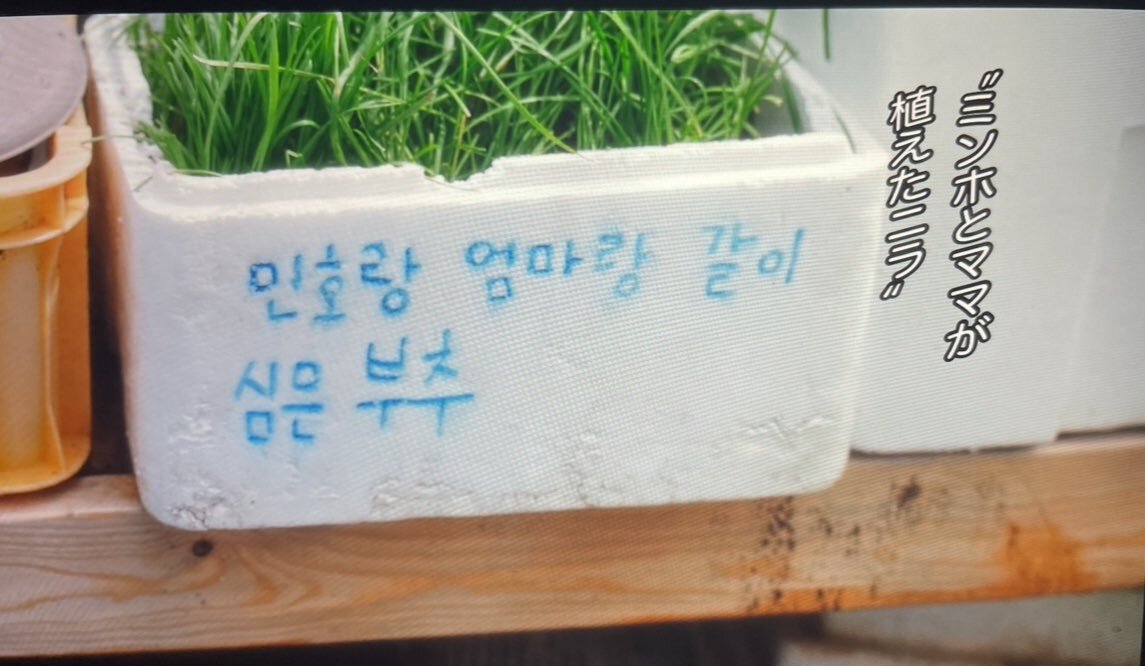 민호랑 엄마랑 같이
심은 부추
“ミンホとママが
植えたニラ”